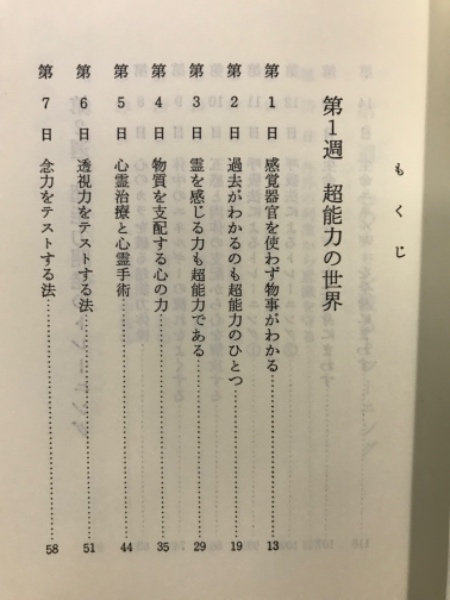 もくじ
第1週 超能力の世界
第1日 感覚器官を使わず物事がわかる……13
第2日 過去がわかるのも超能力のひとつ……19
第3日 霊を感じる力も超能力である……29
第4日 物質を支配する心の力……35
第5日 心霊治療と心霊手術……44
第6日 透視力をテストする法……51
第7日 念力をテストする法……58